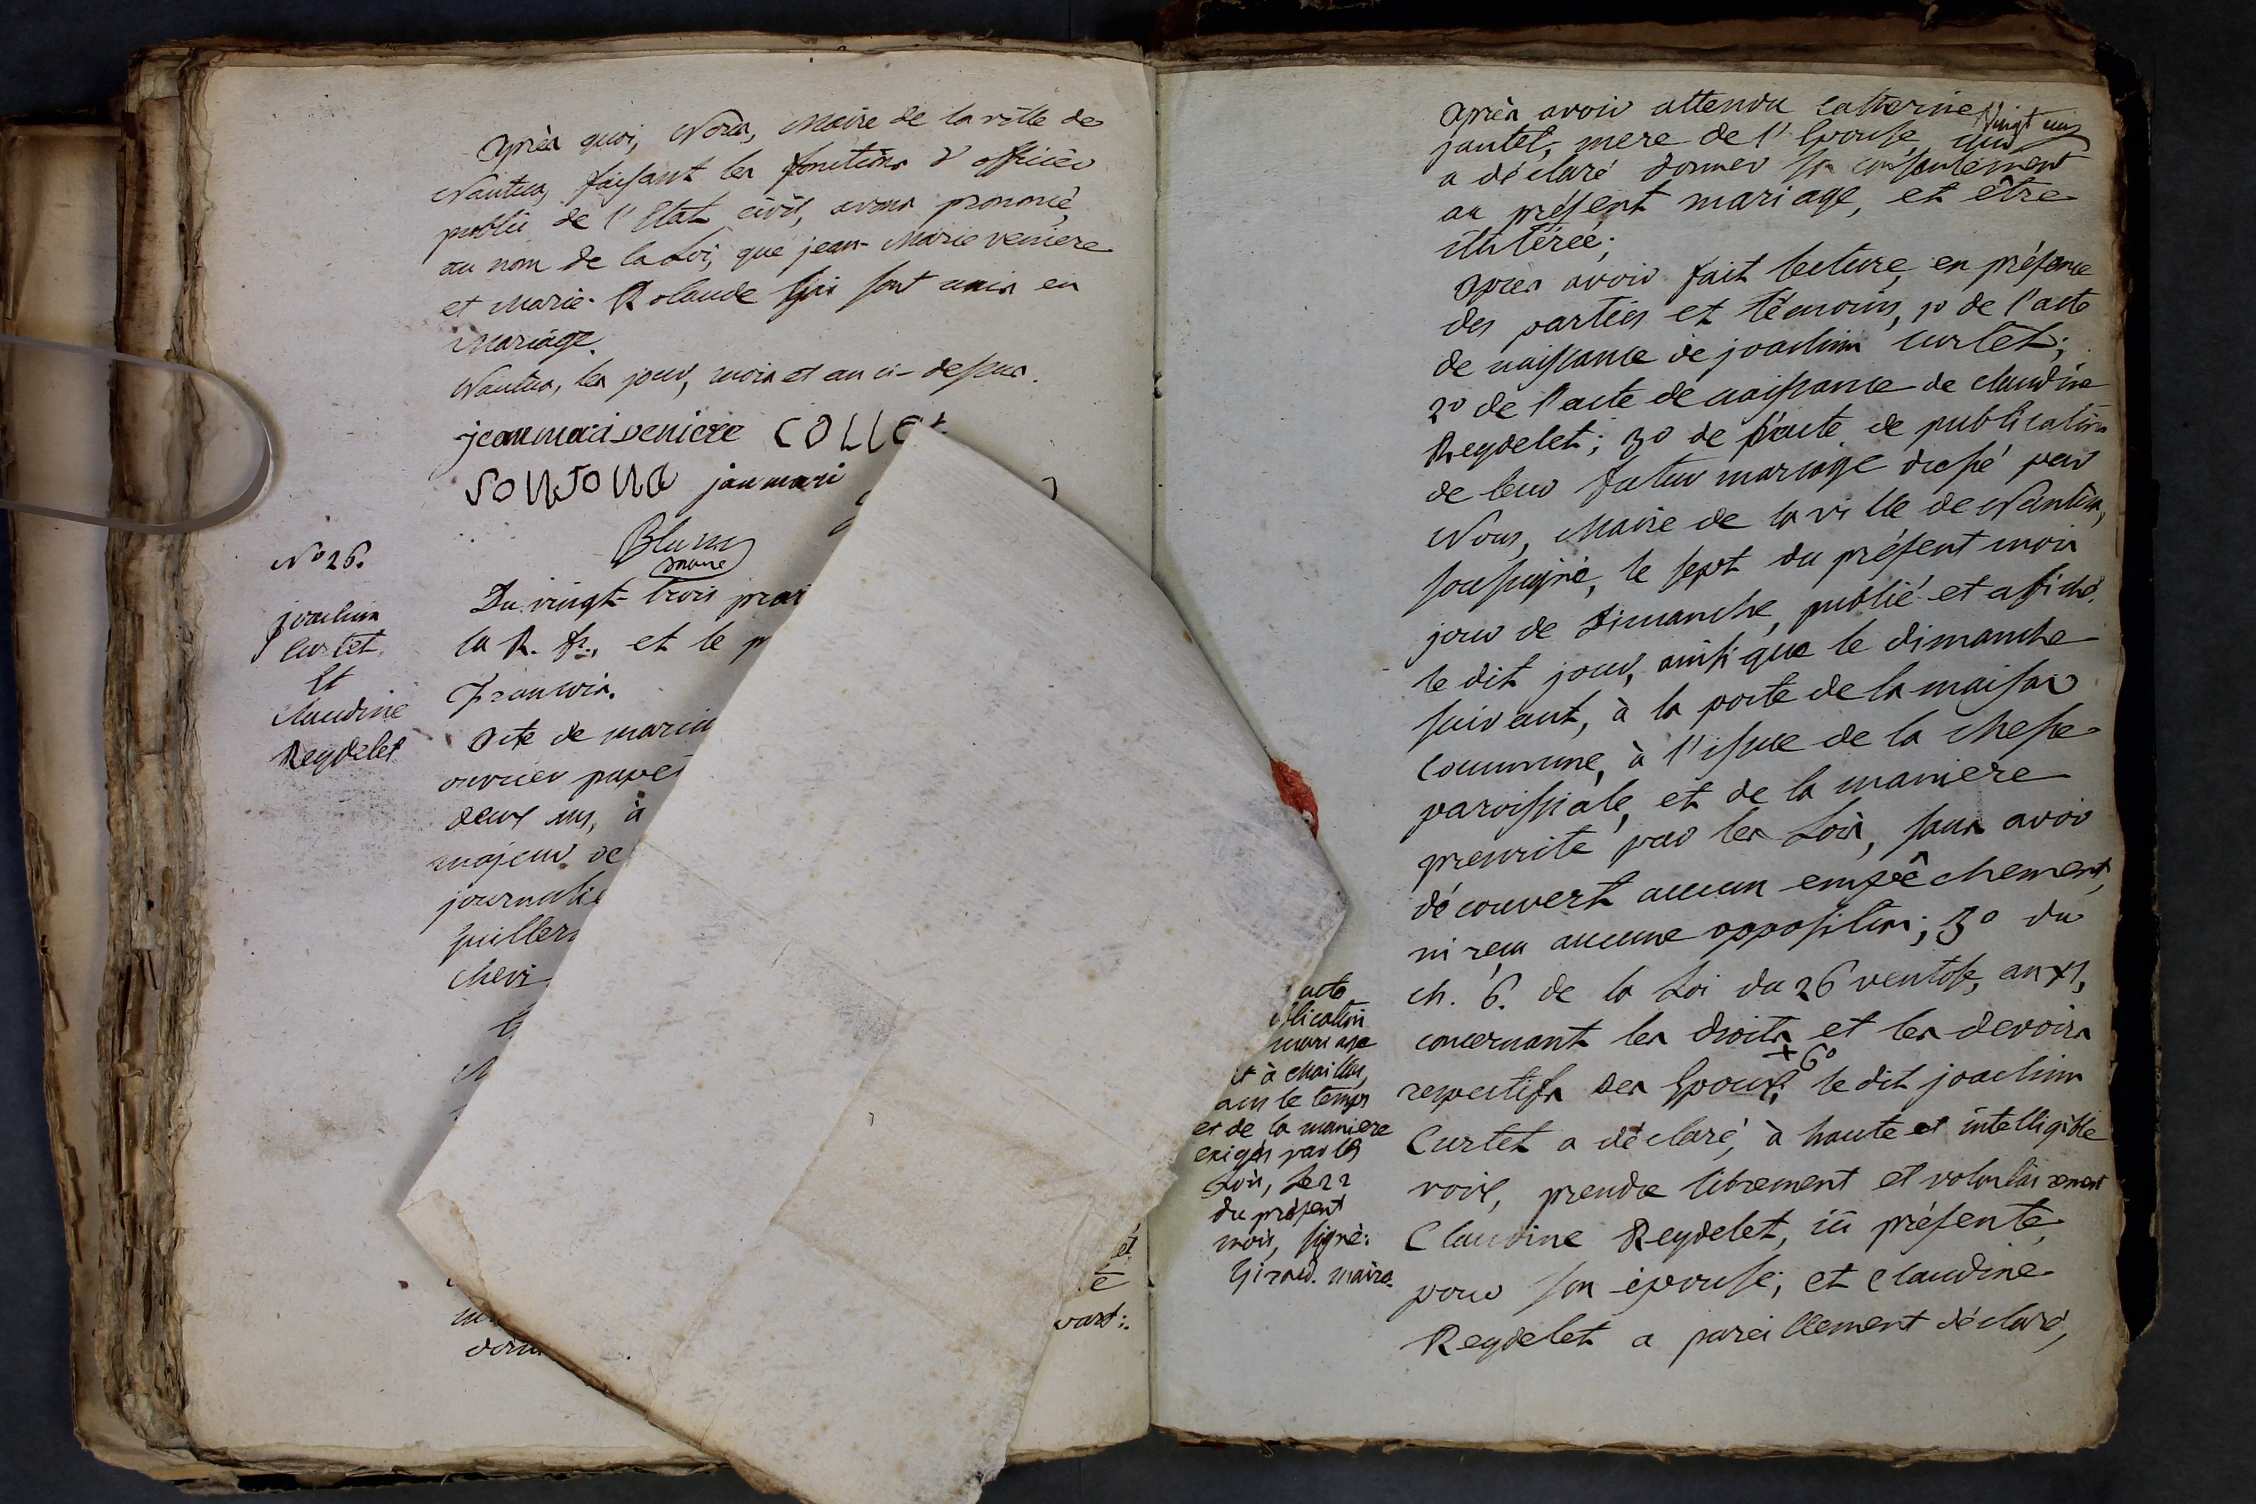 après quoi, Nous, Maire de la ville de
Nantua, faisant les fonctions d'officier
public de l'Etat civil, avons prononcé,
au nom de la Loi, que jean-Marie veniere
et Marie-Rolande sont unis en
Mariage.
Nantua, les jour, mois et an ci-dessus.
jean mari veniere COLLET
SONTONA jan mari
Blanc
maire
N° 26.
joachim
Curtet
Et
Claudine
Reydelet
Du vingt-trois prai
la R. fr., et le p
François.
Acte de maria
ouvrier pape
deux ans, à
majeur de
journalie
guiller
chevi
et
e
part:.
Après avoir attendu Catherine
jantet, mere de l'Epouse, qui
vingt un
a déclaré donner son consentement
au présent mariage, et être
illitérée;
Après avoir fait lecture, en présence
des parties et témoins, 1° de l'acte
de naissance de joachim Curtet;
2° de l'acte de naissance de Claudine
Reydelet; 3° de l'acte de publication
de leur futur mariage dressé par
Nous, Maire de la ville de Nantua,
soussigné, le sept du présent mois
jour de Dimanche, publié et affiché
le dit jour, ainsi que le dimanche
suivant, à la porte de la maison
Commune, à l'issue de la Messe
paroissiale, et de la maniere
prescrite par les Loix, sans avoir
découvert aucun empêchement,
ni reçu aucune opposition; 3° du
ch. 6. de la Loi du 26 ventose, an XI,
concernant les droits et les devoirs
respectifs des Epoux; + 6° le dit joachim
Curtet a déclaré, à haute et intelligible
voix, prendre librement et volontairement
Claudine Reydelet, ici présente,
pour son épouse; et Claudine
Reydelet a pareillement déclaré,
acte
blication
mariage
it à Maillat,
ans le temps
et de la maniere
exigés par les
Loix, le 22
du présent
mois, signé:
Girard. maire.